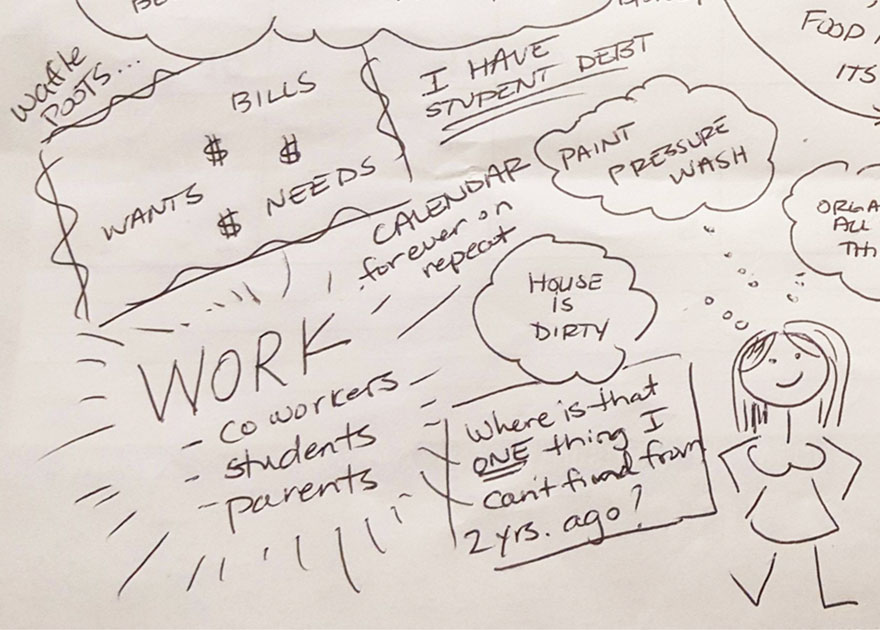 Waffle
POOTS...
BILLS
$ $
WANTS
$ NEEDS
I HAVE
STUDENT DEBT
PAINT
PRESSURE
WASH
FOOD
ITS
CALENDAR
forever on
repeat
HOUSE
IS
DIRTY
ALL
WORK
- coworkers
- students
- parents
Where is that
ONE thing I
can't find from
2 yrs. ago?